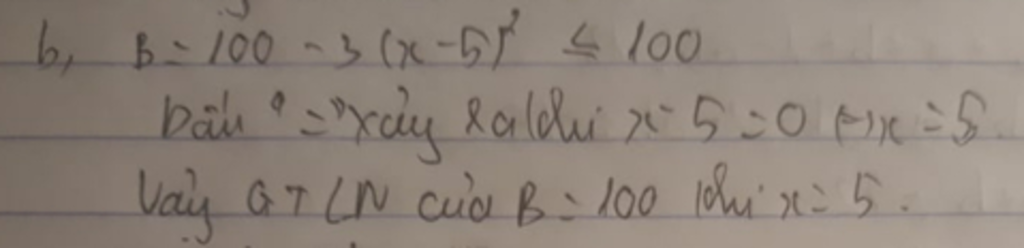 b, B = 100 - 3 (x - 5)² ≤ 100
Dấu "=" xảy ra khi x - 5 = 0 <=> x = 5
Vậy GTLN của B = 100 khi x = 5.